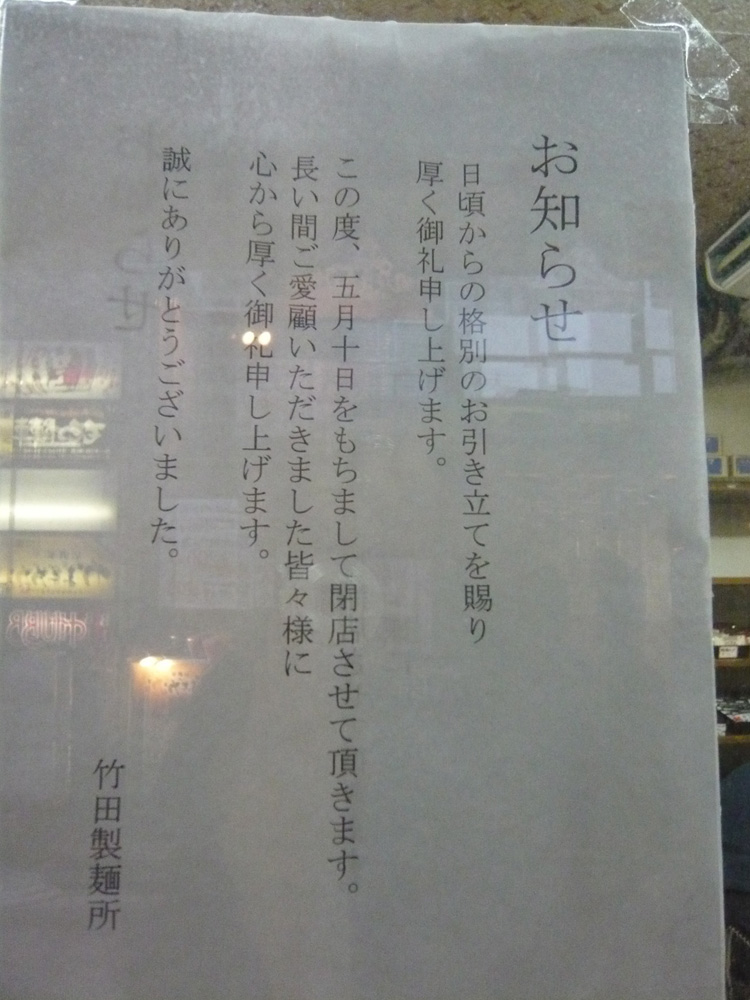 お知らせ
日頃からの格別のお引き立てを賜り
厚く御礼申し上げます。
この度、五月十日をもちまして閉店させて頂きます。
長い間ご愛顧いただきました皆々様に
心から厚く御礼申し上げます。
誠にありがとうございました。
竹田製麺所